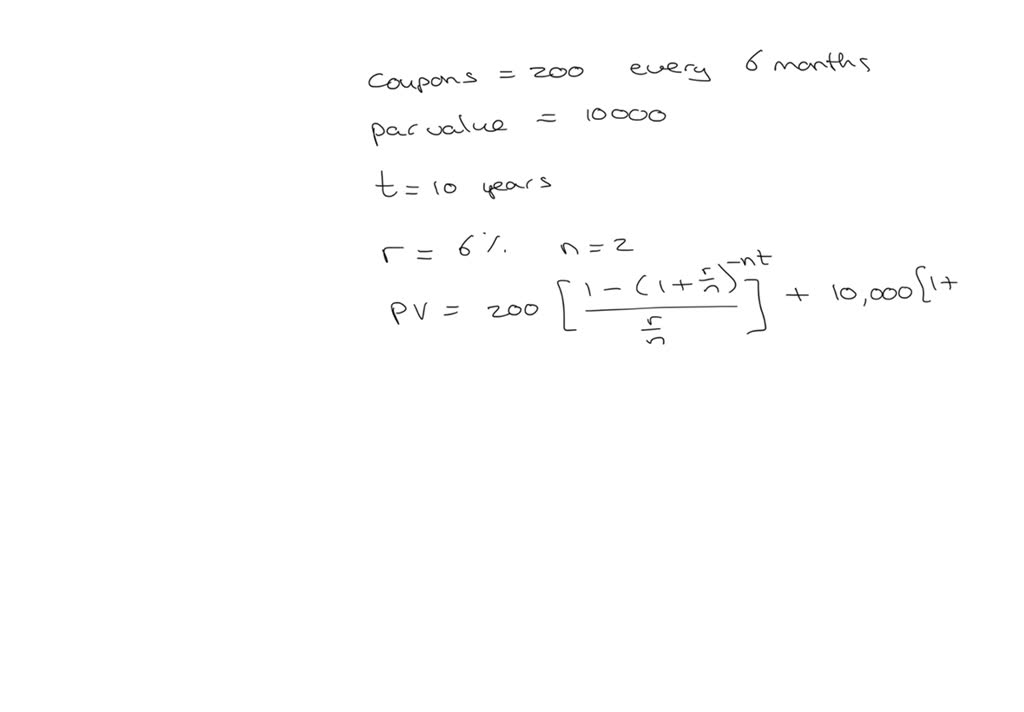 coupons = 200 every 6 months
par value = 10000
t = 10 years
r = 6% n = 2
PV = 200 [ (1 - (1 + r/n)^-nt) / (r/n) ] + 10,000 [1+